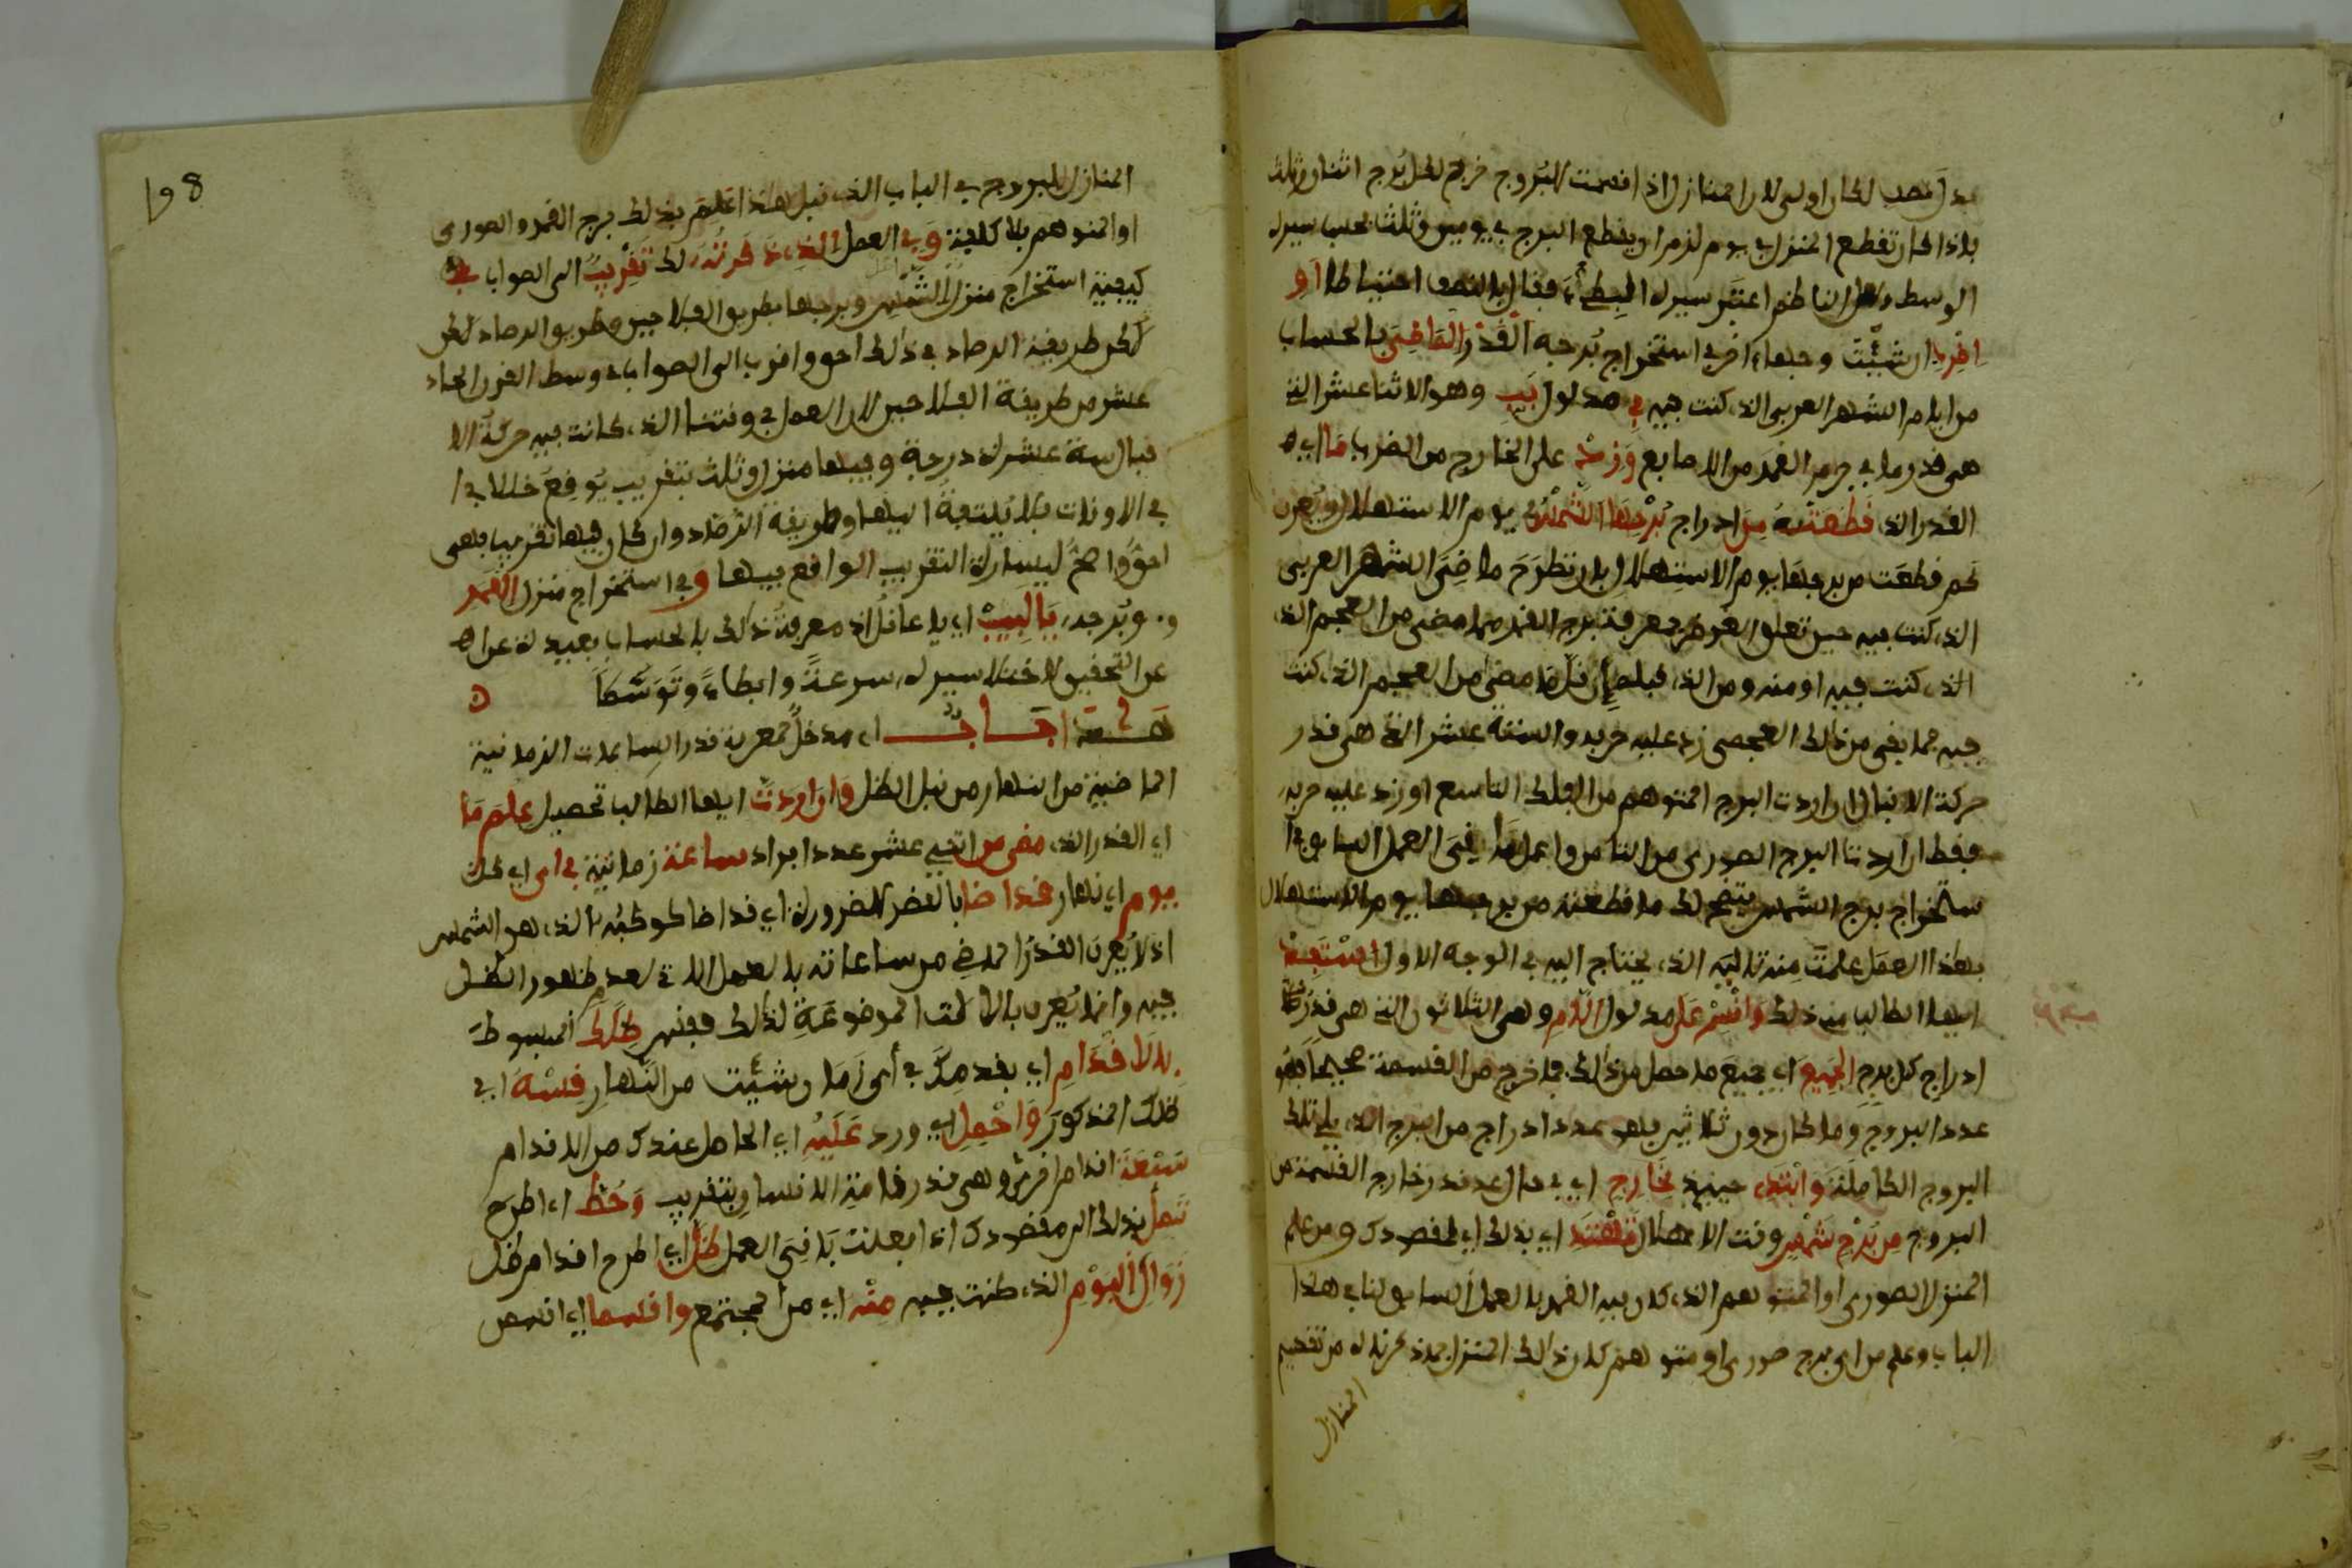 لكان اولى لان المنازل اذا قسمت للبروج خرج لكل برج اثنان وثلث
فاذا كان تقطع المنزل في يوم لزم ان يقطع البرج في يومين وثلث بحسب سيره
الوسط الناظم اعتبر سيره البطيء فقال احتياطا او
ان شئت استخراج برجه القدر الماضي بالحساب
من ايام الشهر العربي الذي كنت فيه في مدلول يب وهو الاثنا عشر التي
هي قدر ما في جرم القمر من الاصابع وزد على الخارج من الضرب ما اي
القدر الذي قطعته من ادراج برجها الشمس يوم الاستهلال ويعرف
كم قطعت من برجها يوم الاستهلال بان تطرح ماضي الشهر العربي
الذي كنت فيه حين تعلق الغرض بمعرفة برج القمر مما مضى من العجم الذي
الذي كنت فيه او منه ومن الذي قبله ان قل ما مضى من العجم الذي كنت
فيه فما بقي من ذلك العجمي زد عليه حربه والستة عشر التي هي قدر
حركة الاقبال ان اردت البرج المتوهم من الفلك التاسع او زد عليه حربه
فقط ان اردت البرج الصوري من الثامن واعمل باقي العمل السابق في ا
ستخراج برج الشمس يتضح لك ما قطعته من برجها يوم الاستهلال
بهذا العمل علمت منه ثانيه الذي يحتاج اليه في الوجه الاول
ايها الطالب من ذلك واقسم على مدلول اللام وهي الثلاثون التي هي قدر
ادراج كل برج الجميع اي جميع ما حصل من ذلك فما خرج من القسمة صحيحا فهو
عدد البروج وما كان دون ثلاثين فهو عدد ادراج من البرج الذي يلي تلك
البروج الكاملة وابتدي حينئذ بخارج اي في حال عد قدر خارج القسمة من
البروج من برج شمس وقت الاهلال تهتد اي بذلك اي لمقصودك ومن علم
المنزل الصوري او المتوهم الذي كان فيه القمر بالعمل السابق لنا في هذا
الباب وعلم من اي برج صوري او متوهم كان ذلك المنزل من تقسيم
المنازل
198
المنازل للبروج في الباب الذي قبل هذا علم بذلك برج القمر الصوري
او المتوهم بلا كلفة وفي العمل الذي ذكرته لك تقريب الى الصواب في
كيفية استخراج منزل الشمس وبرجها بطريق الفلاحين وطريق الرصاد
لكن طريقة الرصاد في ذلك احق واقرب الى الصواب في وسط القرن الحادي
عشر من طريقة الفلاحين لان العمل في وقتنا الذي كانت فيه حركة الا
قبال ستة عشر درجة وفيها منزل وثلث بتقريب يوقع خللا في ا
في الاوقات فلا يلتفت اليها وطريقة الرصاد وان كان فيها تقريب فهي
احق واصح ليسارة التقريب الواقع فيها وفي استخراج منزل القمر
و وبرجه يا لبيب اي يا عاقل اذ معرفة ذلك بالحساب بعيدة عن
عن التحقيق لاختلاف سيره سرعة وابطاء وتوسطا
اي مدخل لمعرفة قدر الساعات الزمانية
الماضية من النهار من قبل الظل وان اردت ايها الطالب تحصيل علم ما
اي القدر الذي مضى من اثني عشر عددا افراد ساعة زمانية في اي اي في كل
يوم اي نهار قد اضا بالقصر للضرورة اي قد اضا كوكبه الذي هو الشمس
اذ لا يعرف القدر الماضي من ساعاته بالعمل الاتي لعدم ظهور الظل
فيه وانما يعرف بالالات الموضوعة لذلك فقس ظلك المبسوط
بالاقدام اي بقدمك في اي زمان شئت من النهار قسه اي
ظلك المذكور واحمل اي وزد عليه اي الحاصل عندك من الاقدام
سبعة اقدام اخرى وهي قدر قامة الانسان بتقريب وحط اي اطرح
تصل بذلك الى مقصودك اذا فعلت باقي العمل ظل اي اطرح اقدام ظل
زوال اليوم الذي كنت فيه منه اي من المجتمع واقسما اي اقسمن